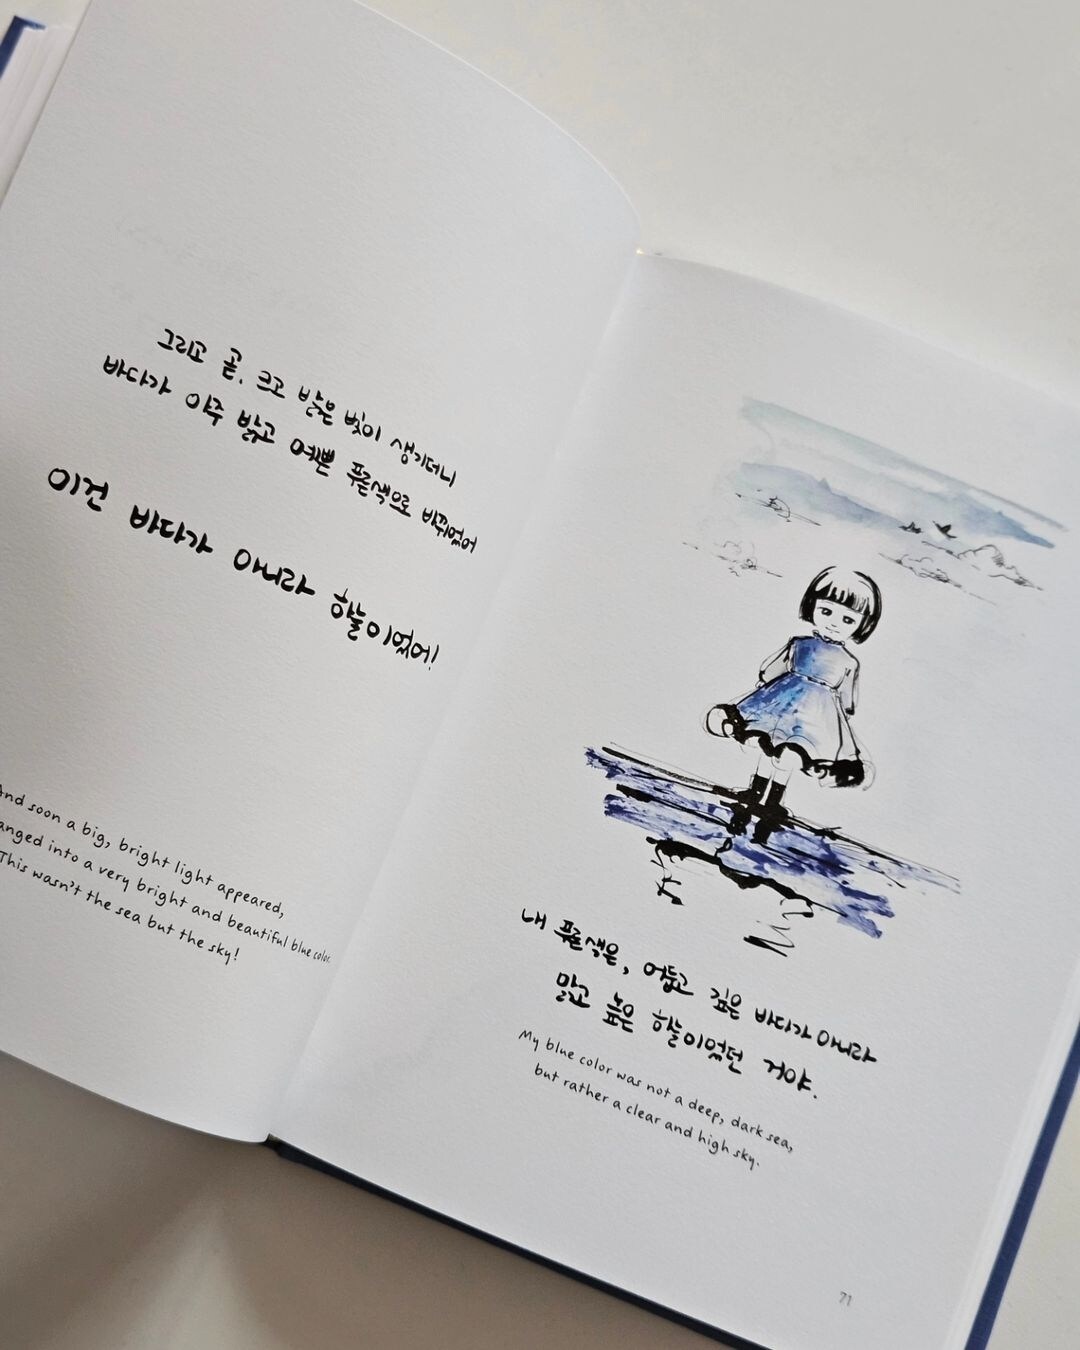 그리고 곧, 크고 밝은 빛이 생기더니
바다가 아주 밝고 예쁜 푸른색으로 바뀌었어
이건 바다가 아니라 하늘이었어!
And soon a big, bright light appeared,
anged into a very bright and beautiful blue color.
This wasn't the sea but the sky!
내 푸른색은, 어둡고 깊은 바다가 아니라
맑고 높은 하늘이었던 거야.
My blue color was not a deep, dark sea,
but rather a clear and high sky.
71